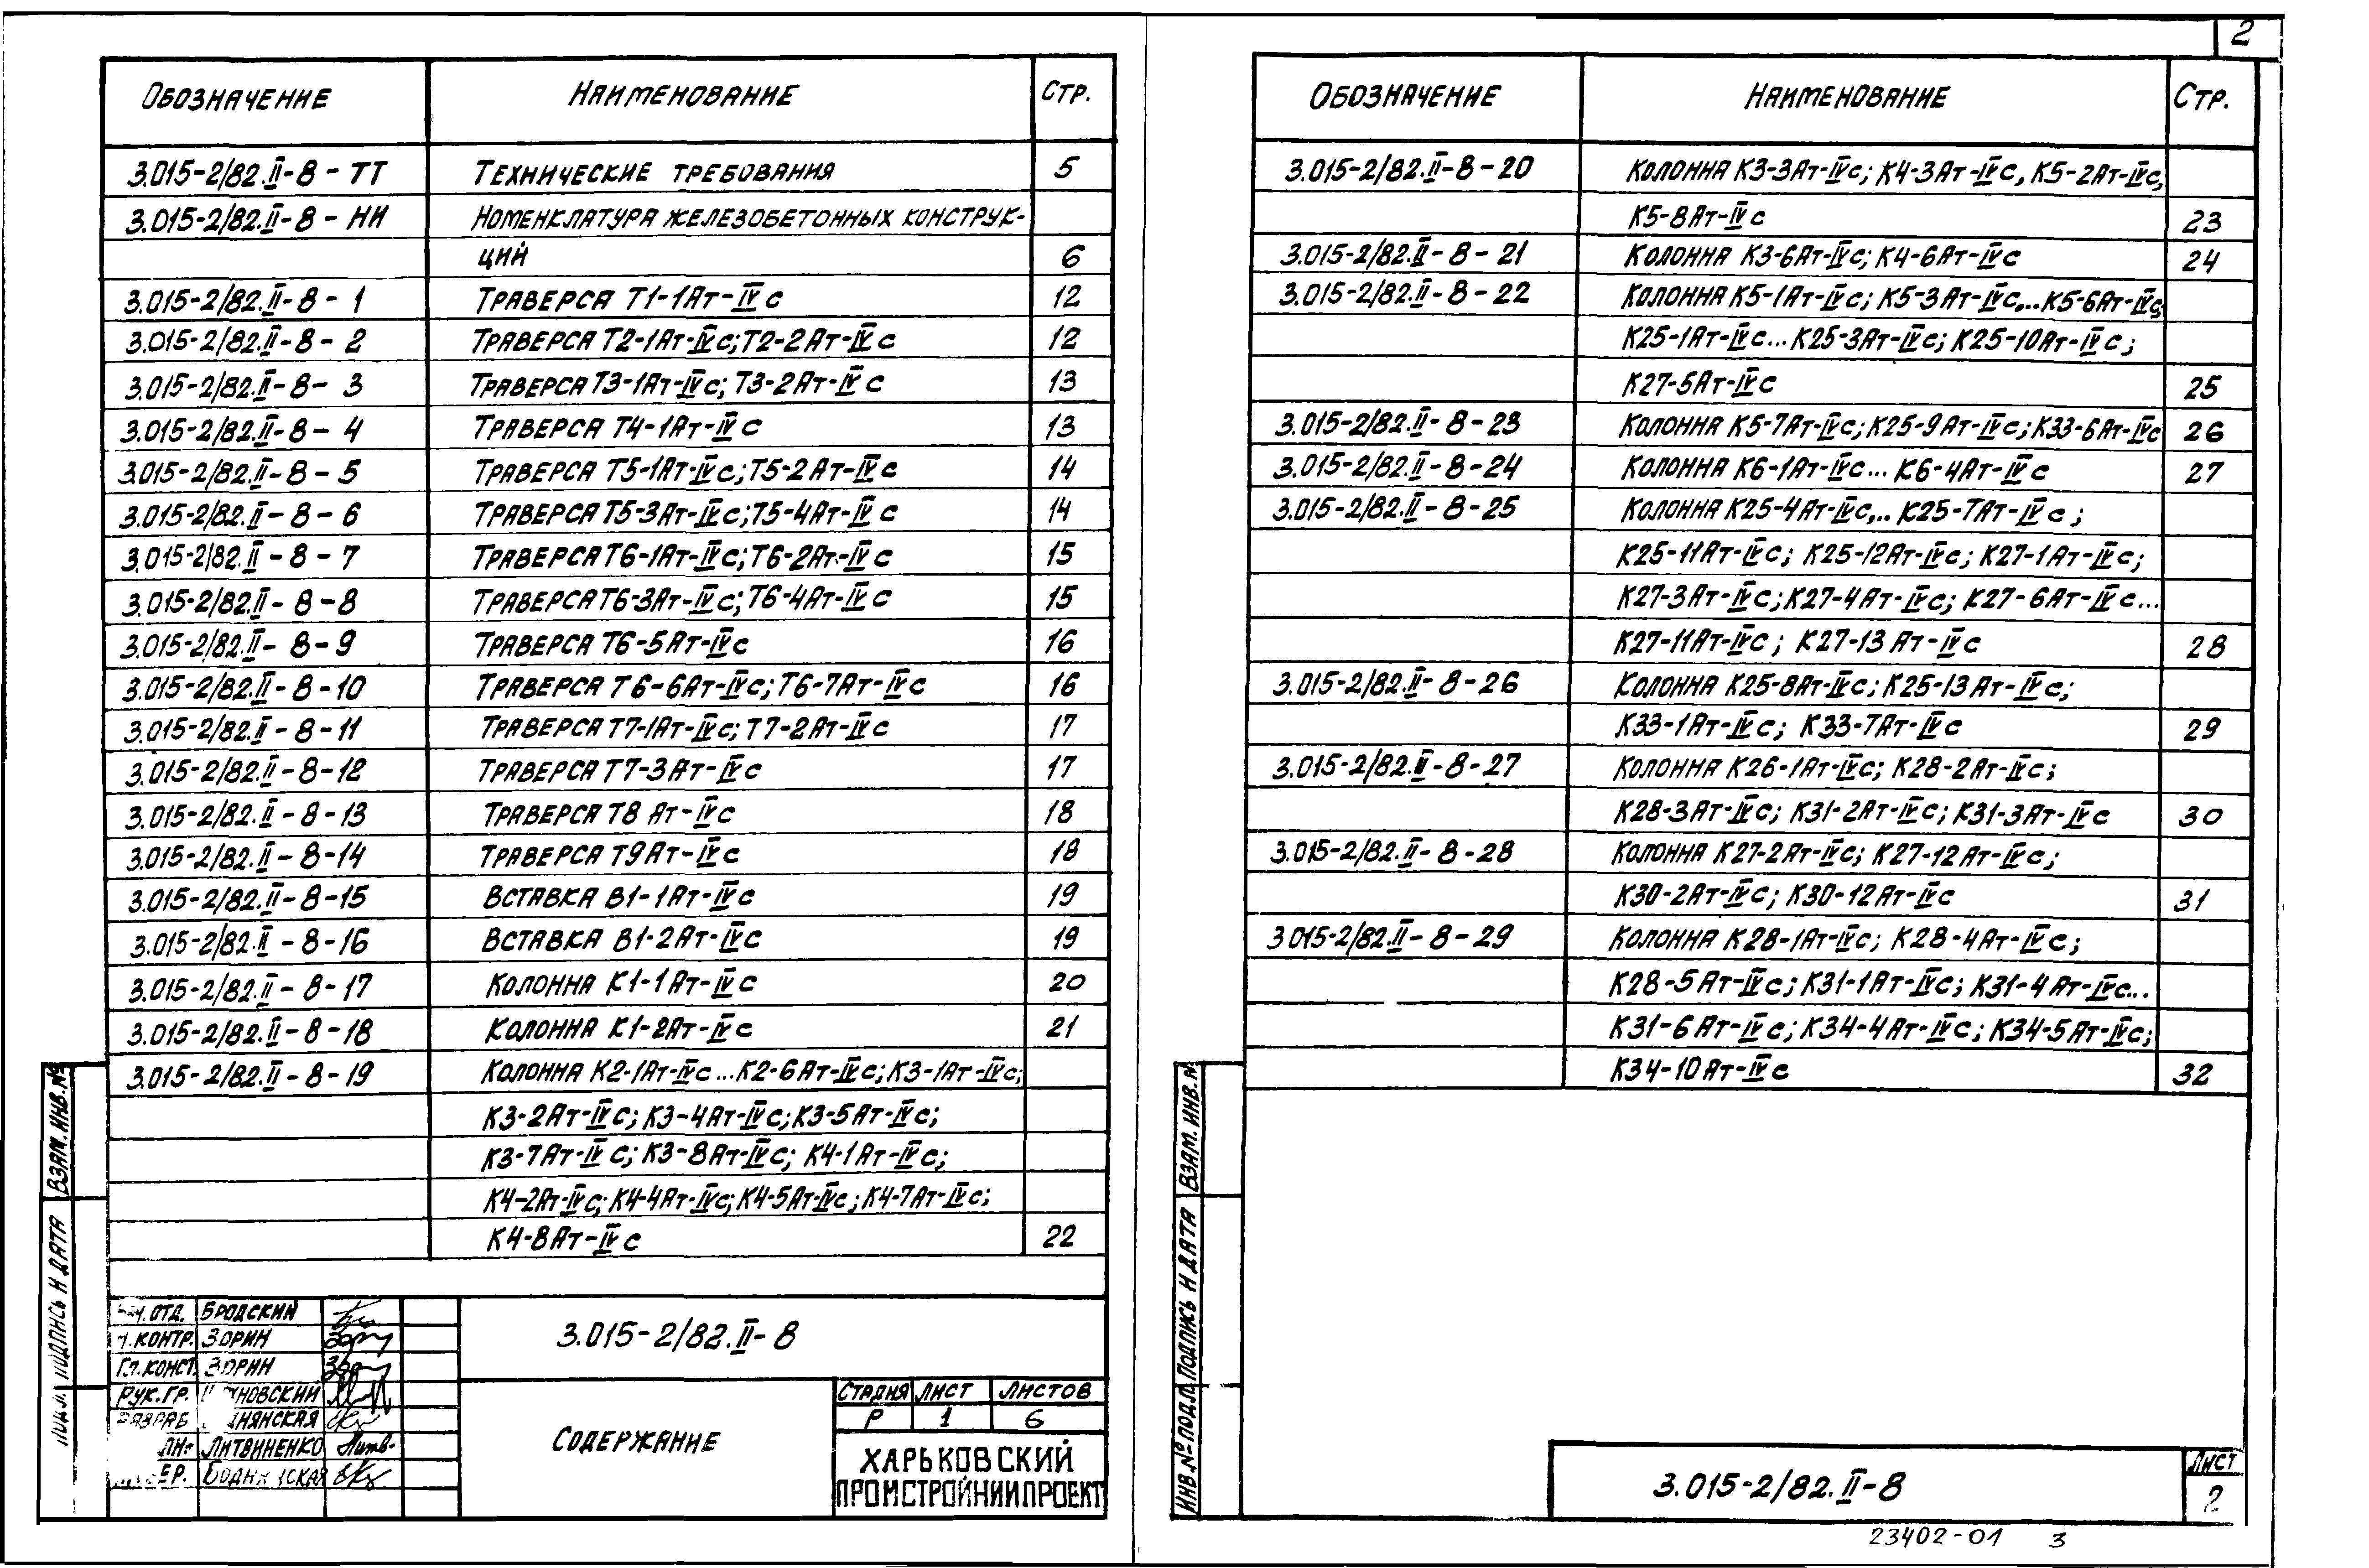 2
Обозначение Наименование Стр.
3.015-2/82.II-8-ТТ Технические требования 5
3.015-2/82.II-8-НИ Номенклатура железобетонных конструк-
ций 6
3.015-2/82.II-8-1 Траверса Т1-1Ат-IVс 12
3.015-2/82.II-8-2 Траверса Т2-1Ат-IVс; Т2-2Ат-IVс 12
3.015-2/82.II-8-3 Траверса Т3-1Ат-IVс; Т3-2Ат-IVс 13
3.015-2/82.II-8-4 Траверса Т4-1Ат-IVс 13
3.015-2/82.II-8-5 Траверса Т5-1Ат-IVс; Т5-2Ат-IVс 14
3.015-2/82.II-8-6 Траверса Т5-3Ат-IVс; Т5-4Ат-IVс 14
3.015-2/82.II-8-7 Траверса Т6-1Ат-IVс; Т6-2Ат-IVс 15
3.015-2/82.II-8-8 Траверса Т6-3Ат-IVс; Т6-4Ат-IVс 15
3.015-2/82.II-8-9 Траверса Т6-5Ат-IVс 16
3.015-2/82.II-8-10 Траверса Т6-6Ат-IVс; Т6-7Ат-IVс 16
3.015-2/82.II-8-11 Траверса Т7-1Ат-IVс; Т7-2Ат-IVс 17
3.015-2/82.II-8-12 Траверса Т7-3Ат-IVс 17
3.015-2/82.II-8-13 Траверса Т8 Ат-IVс 18
3.015-2/82.II-8-14 Траверса Т9Ат-IVс 18
3.015-2/82.II-8-15 Вставка В1-1Ат-IVс 19
3.015-2/82.II-8-16 Вставка В1-2Ат-IVс 19
3.015-2/82.II-8-17 Колонна К1-1Ат-IVс 20
3.015-2/82.II-8-18 Колонна К1-2Ат-IVс 21
3.015-2/82.II-8-19 Колонна К2-1Ат-IVс...К2-6Ат-IVс; К3-1Ат-IVс;
К3-2Ат-IVс; К3-4Ат-IVс; К3-5Ат-IVс;
К3-7Ат-IVс; К3-8Ат-IVс; К4-1Ат-IVс;
К4-2Ат-IVс; К4-4Ат-IVс; К4-5Ат-IVс; К4-7Ат-IVс;
К4-8Ат-IVс 22
Взам. инв. №
Подпись и дата
отд. Бродский
контр. Зорин
Гл. конст. Зорин
Рук. гр.
Литвиненко
3.015-2/82.II-8
Содержание
Стадия Лист Листов
Р 1 6
ХАРЬКОВСКИЙ
ПРОМСТРОЙНИИПРОЕКТ
Обозначение Наименование Стр.
3.015-2/82.II-8-20 Колонна К3-3Ат-IVс; К4-3Ат-IVс, К5-2Ат-IVс,
К5-8Ат-IVс 23
3.015-2/82.II-8-21 Колонна К3-6Ат-IVс; К4-6Ат-IVс 24
3.015-2/82.II-8-22 Колонна К5-1Ат-IVс; К5-3Ат-IVс...К5-6Ат-IVс;
К25-1Ат-IVс...К25-3Ат-IVс; К25-10Ат-IVс;
К27-5Ат-IVс 25
3.015-2/82.II-8-23 Колонна К5-7Ат-IVс; К25-9Ат-IVс; К33-6Ат-IVс 26
3.015-2/82.II-8-24 Колонна К6-1Ат-IVс...К6-4Ат-IVс 27
3.015-2/82.II-8-25 Колонна К25-4Ат-IVс...К25-7Ат-IVс;
К25-11Ат-IVс; К25-12Ат-IVс; К27-1Ат-IVс;
К27-3Ат-IVс; К27-4Ат-IVс; К27-6Ат-IVс...
К27-11Ат-IVс; К27-13Ат-IVс 28
3.015-2/82.II-8-26 Колонна К25-8Ат-IVс; К25-13Ат-IVс;
К33-1Ат-IVс; К33-7Ат-IVс 29
3.015-2/82.II-8-27 Колонна К26-1Ат-IVс; К28-2Ат-IVс;
К28-3Ат-IVс; К31-2Ат-IVс; К31-3Ат-IVс 30
3.015-2/82.II-8-28 Колонна К27-2Ат-IVс; К27-12Ат-IVс;
К30-2Ат-IVс; К30-12Ат-IVс 31
3.015-2/82.II-8-29 Колонна К28-1Ат-IVс; К28-4Ат-IVс;
К28-5Ат-IVс; К31-1Ат-IVс; К31-4Ат-IVс...
К31-6Ат-IVс; К34-4Ат-IVс; К34-5Ат-IVс;
К34-10Ат-IVс 32
Взам. инв. №
Подпись и дата
Инв. № подл.
3.015-2/82.II-8
Лист
2
23402-01 3